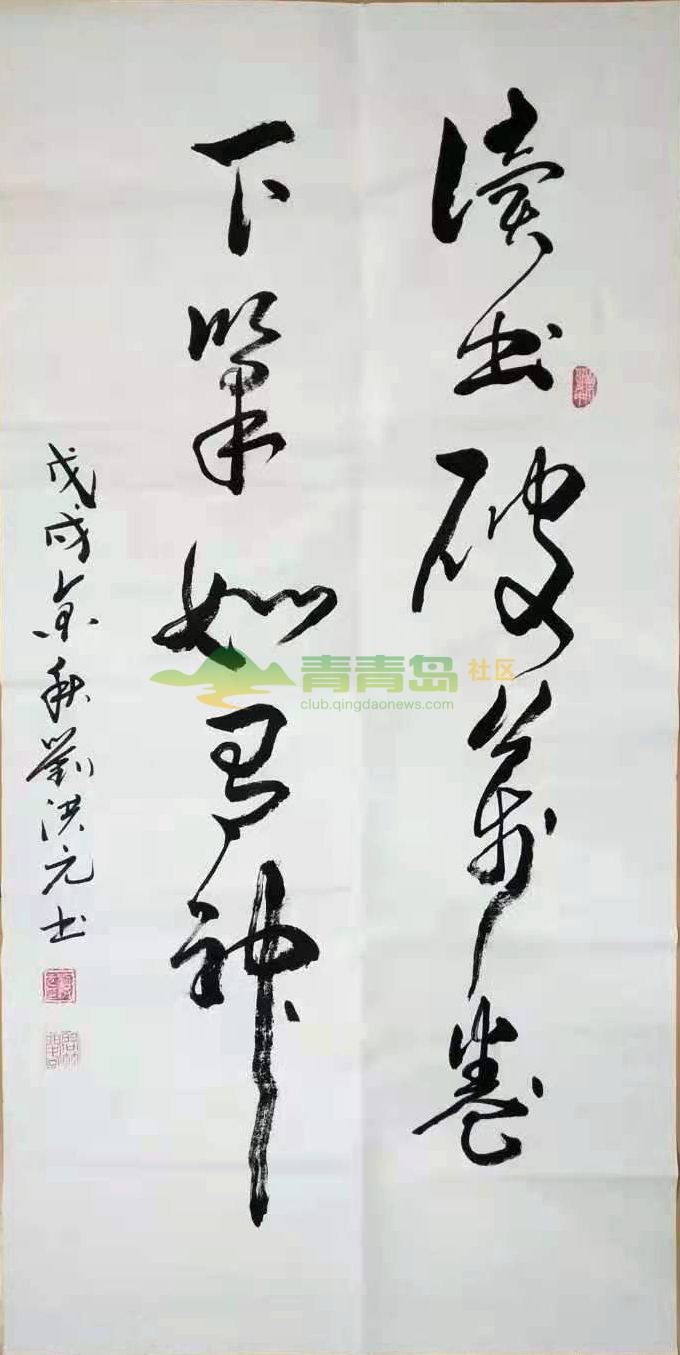 讀书破萬卷
下筆如有神
戊戌金秋劉洪元书
青青岛社区
club.qingdaonews.com